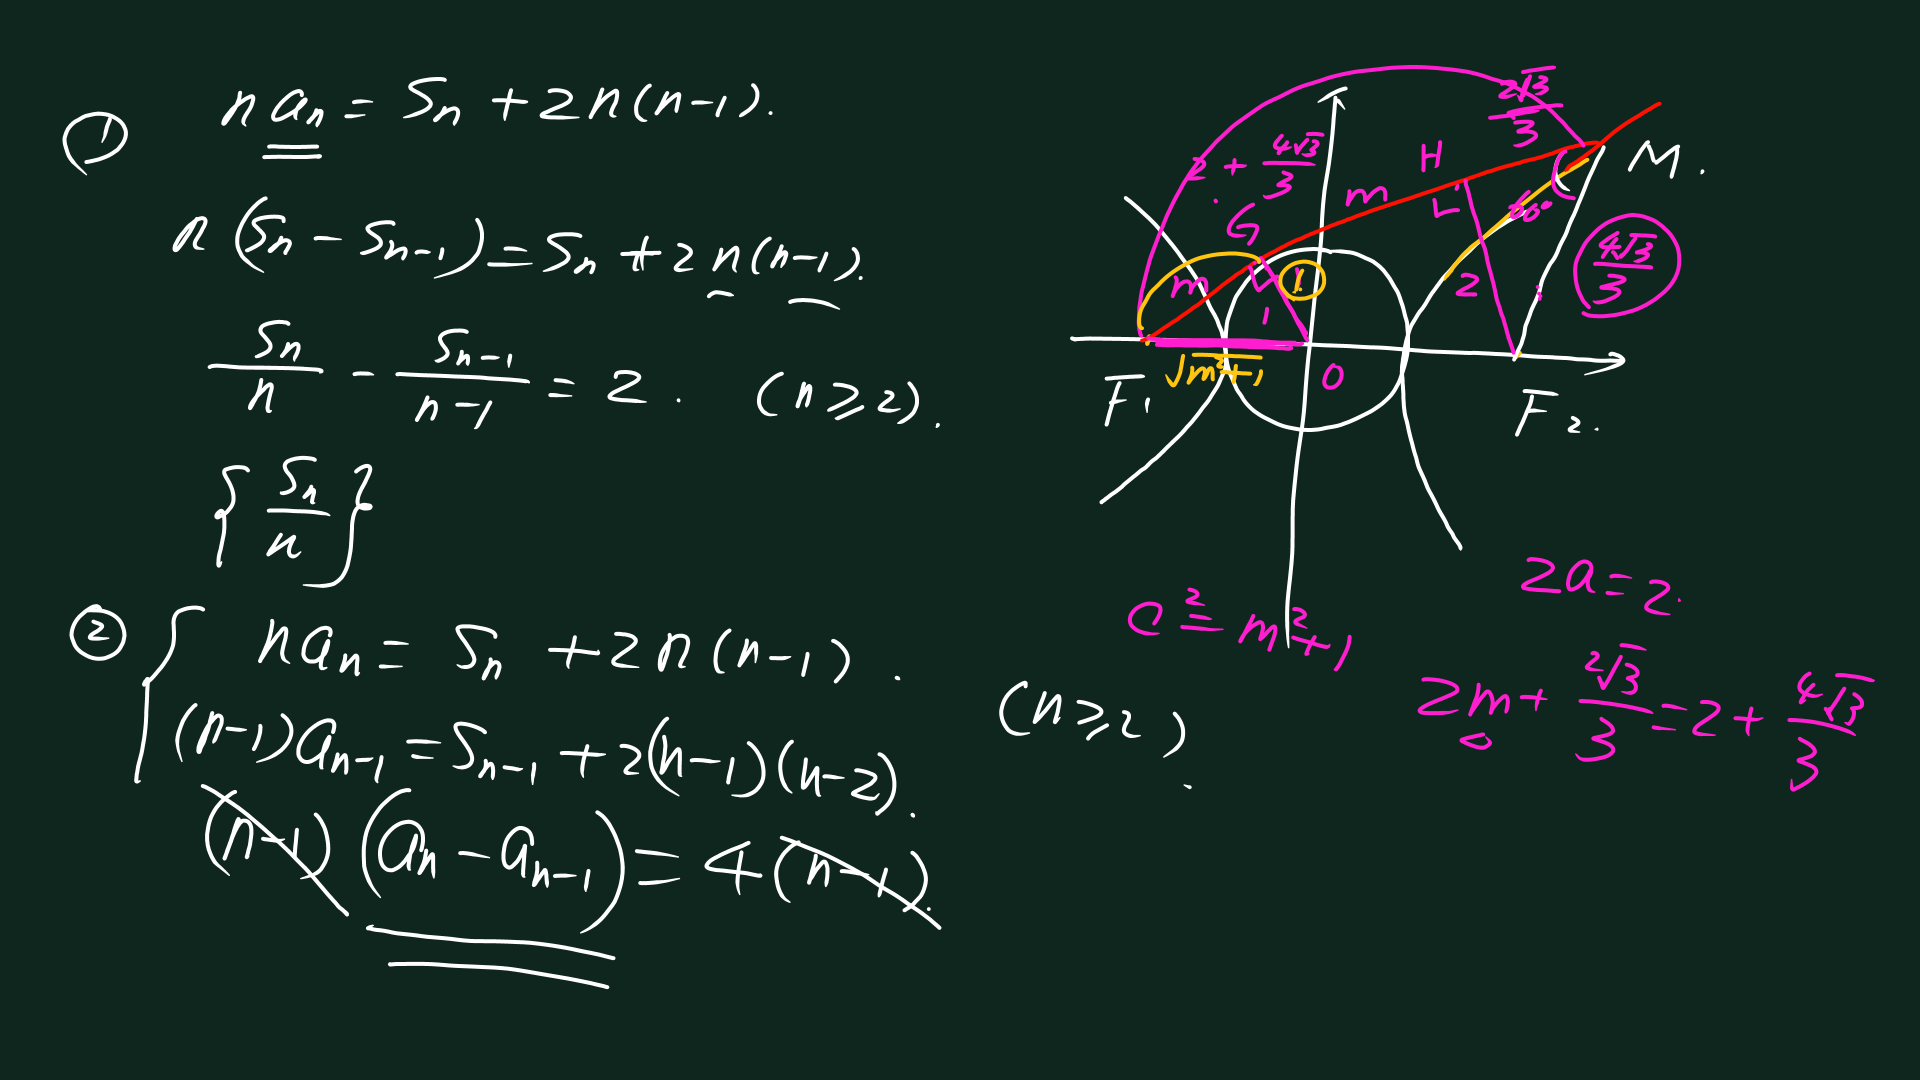 ① naₙ = Sₙ + 2n(n-1).
n(Sₙ - Sₙ₋₁) = Sₙ + 2n(n-1).
Sₙ/n - Sₙ₋₁/(n-1) = 2. (n≥2).
{Sₙ/n}
② { naₙ = Sₙ + 2n(n-1).
(n-1)aₙ₋₁ = Sₙ₋₁ + 2(n-1)(n-2). (n≥2).
(n-1)(aₙ - aₙ₋₁) = 4(n-1).
2√3/3
2 + 4√3/3
H
M.
m
G
60°
4√3/3
m
1
1
2
√m²+1
O
F₁
F₂.
2a=2.
c²=m²+1
2m + 2√3/3 = 2 + 4√3/3